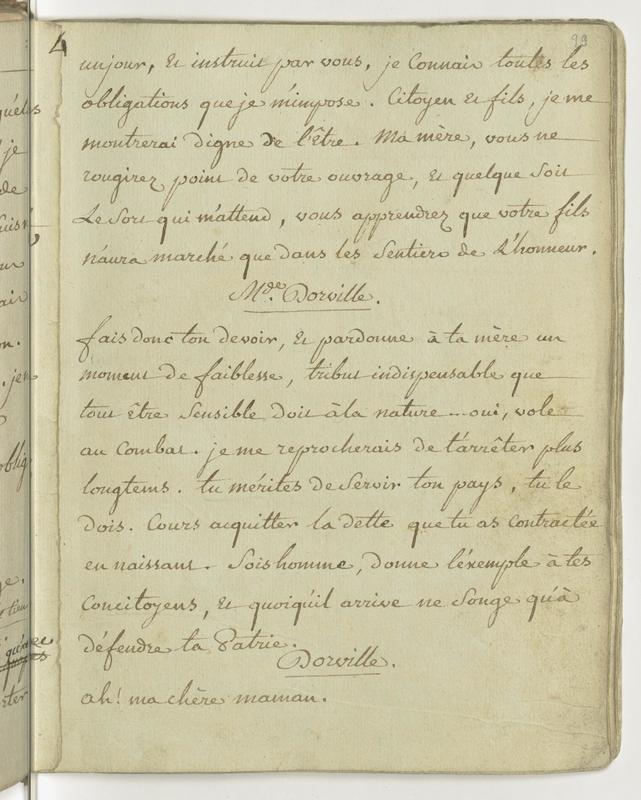 4
99
unjour, Et instruit par vous, je Connais toutes les
obligations que je m'impose. Citoyen Et fils, je me
montrerai digne de l'Être. Ma mère, vous ne
rougirez point de votre ouvrage, Et quelque soit
Le Sort qui m'attend, vous apprendrez que votre fils
n'aura marché que dans les Sentiers de L'honneur.
Mde. Dorville.
fais donc ton devoir, Et pardonne à ta mère un
moment de faiblesse, tribut indispensable que
tout Être Sensible doit à la nature ... oui, vole
au Combat. je me reprocherais de t'arrêter plus
longtems. tu mérites de Servir ton pays, tu le
dois. Cours acquitter la dette que tu as Contractée
en naissant. Sois homme, donne l'éxemple à tes
Concitoyens, Et quoiqu'il arrive ne Songe qu'à
défendre ta Patrie.
Dorville.
ah! ma chère maman.